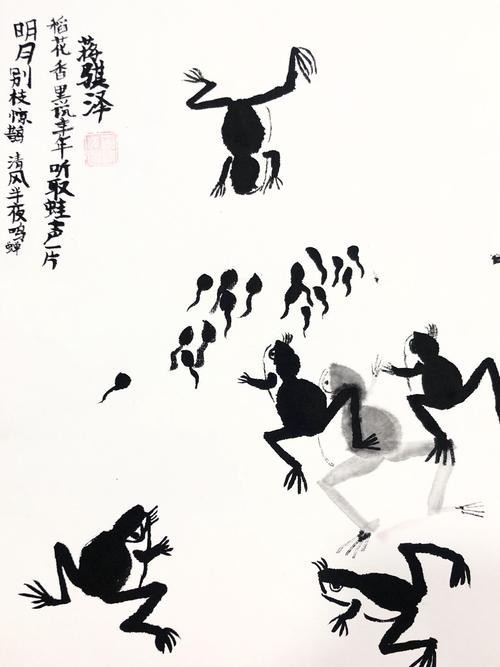 明月别枝惊鹊 清风半夜鸣蝉
稻花香黑说丰年 听取蛙声一片
蒋骐泽